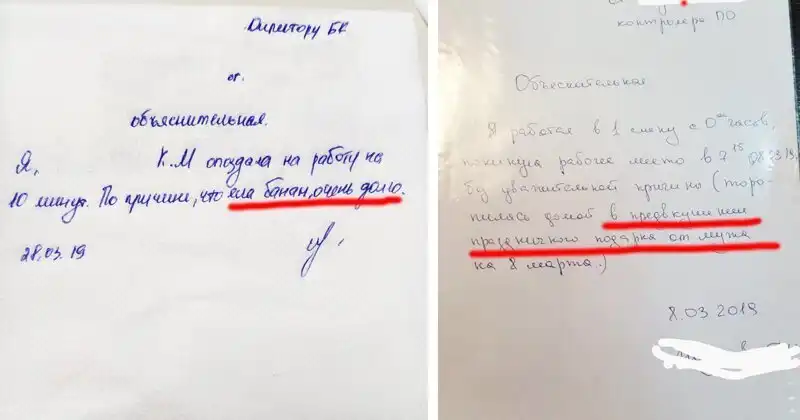 Директору БК
от.
объяснительная.
Я, К.М опаздала на работу на
10 минут. По причине, что ела банан, очень долго.
28.03.19
контролера ПО
Объяснительная
Я работая в 1 смену с 0⁰⁰ часов,
покинула рабочее место в 7¹⁵ 08.03.19,
по уважительной причине (торо-
пилась домой в предвкушении
праздничного подарка от мужа
на 8 марта.)
8.03 2019